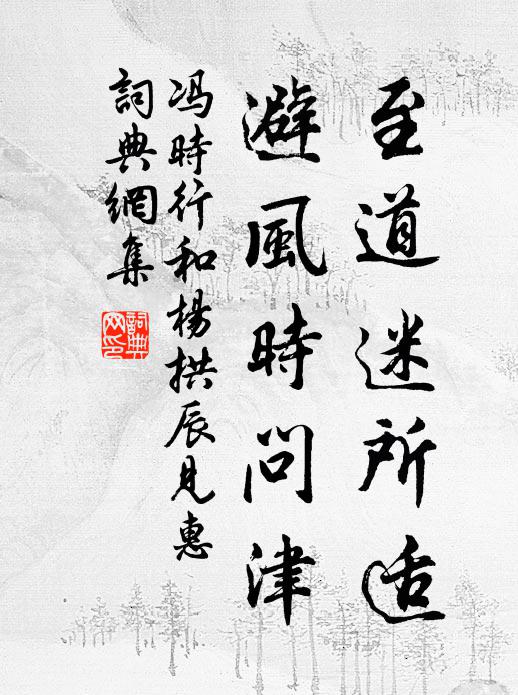 至道迷所适
避風時問津
冯時行和楊拱辰見惠
詞典網集
詞典網印